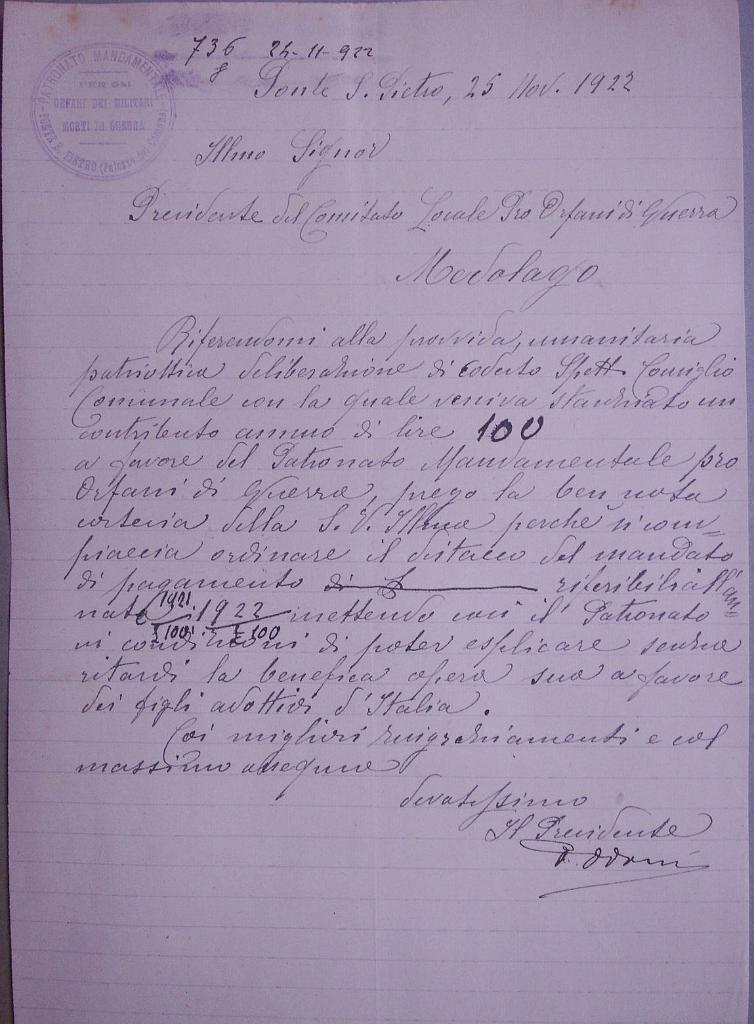 736 24-11-922
8
PATRONATO MANDAMENTALE
PER GLI
ORFANI DEI MILITARI
MORTI IN GUERRA
PONTE S. PIETRO
Ponte S. Pietro, 25 Nov. 1922
Illmo Signor
Presidente del Comitato Locale Pro Orfani di Guerra
Medolago
Riferendomi alla provvida, umanitaria
patriottica deliberazione di codesto Spett. Consiglio
Comunale con la quale veniva stanziato un
contributo annuo di lire 100
a favore del Patronato Mandamentale pro
Orfani di Guerra, prego la ben nota
cortesia della S. V. Illma perchè si com-
piaccia ordinare il distacco del mandato
di pagamento di £ riferibili all'an=
nate 1921. 1922 mettendo così il Patronato
£ 100 £ 100
in condizioni di poter esplicare senza
ritardi la benefica opera sua a favore
dei figli adottivi d'Italia.
Coi migliori ringraziamenti e col
massimo ossequio
devotissimo
Il Presidente